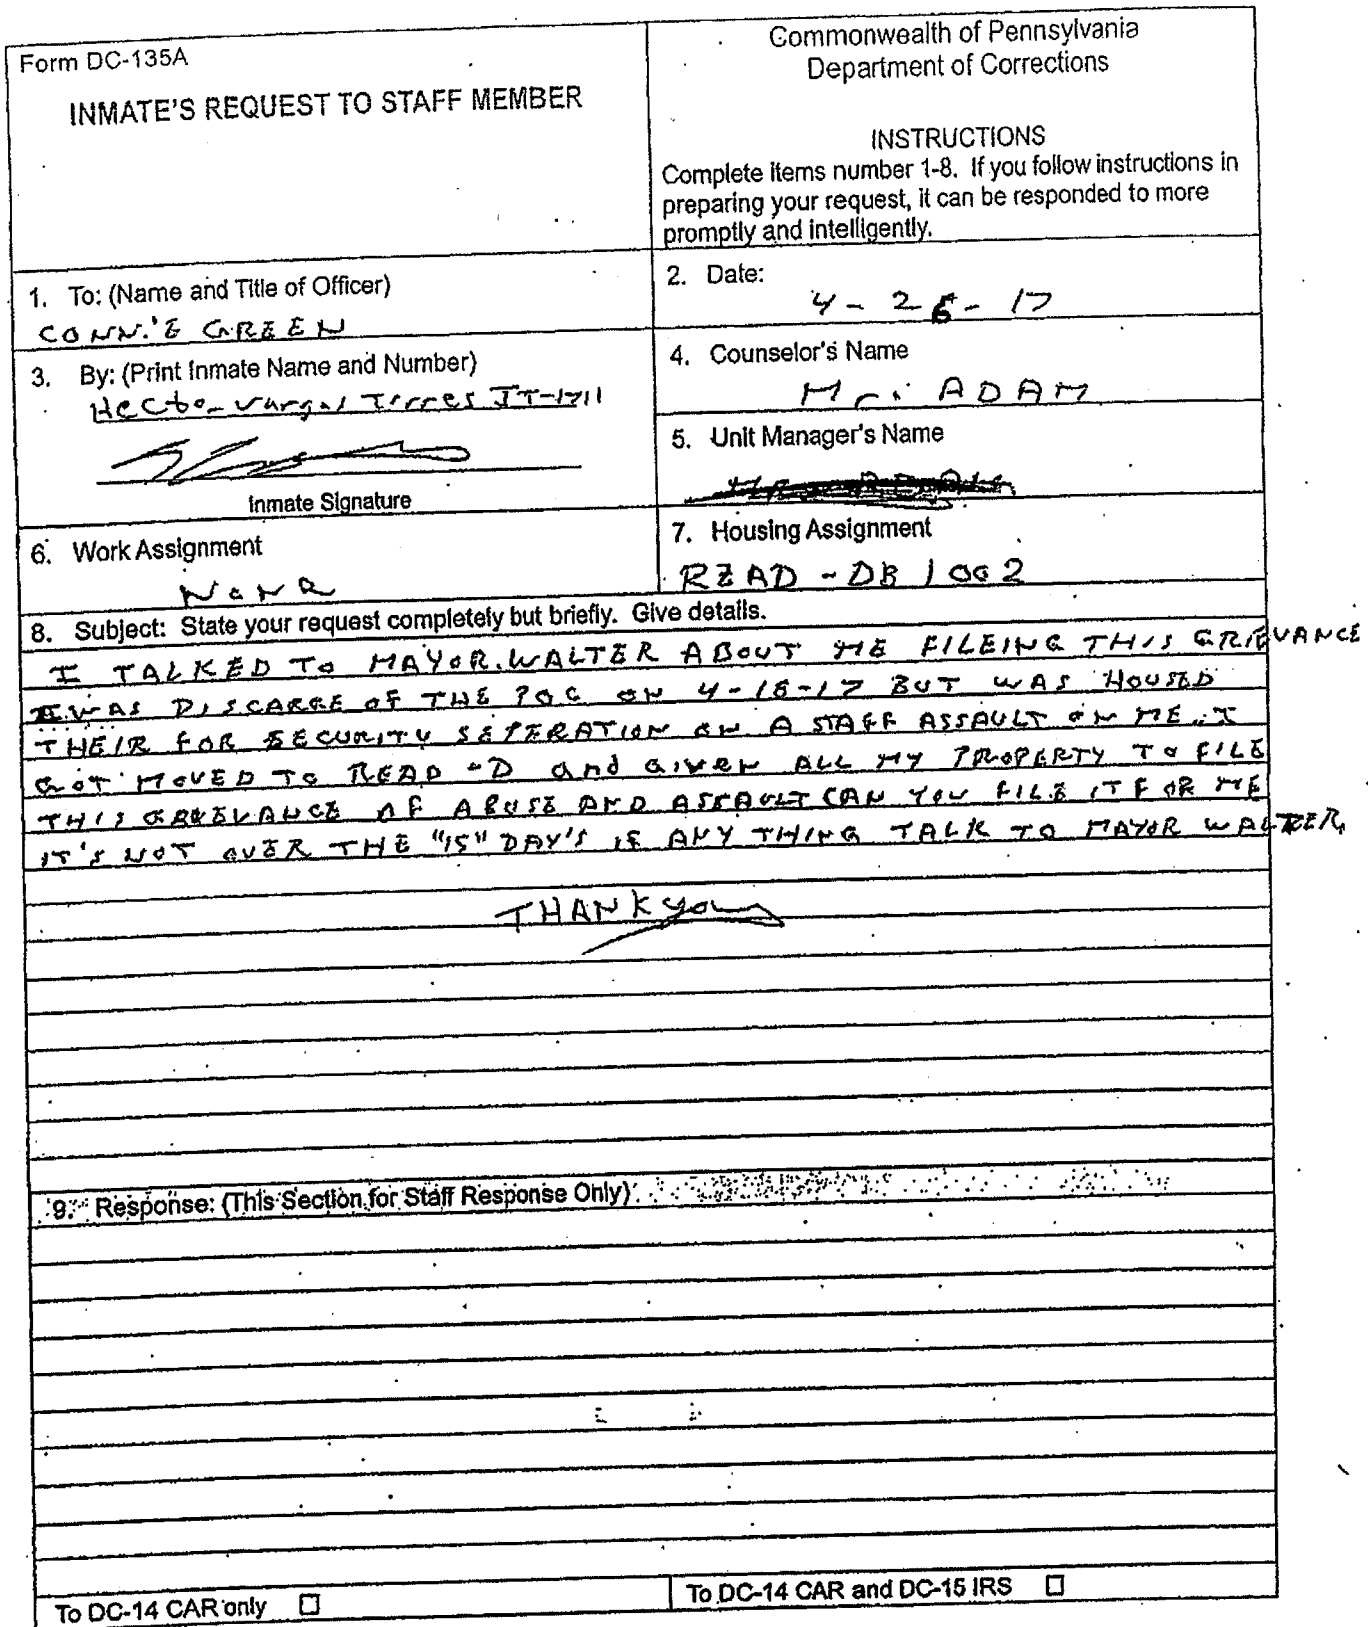 Form DC-135A
INMATE'S REQUEST TO STAFF MEMBER
Commonwealth of Pennsylvania
Department of Corrections
INSTRUCTIONS
Complete items number 1-8. If you follow instructions in
preparing your request, it can be responded to more
promptly and intelligently.
1. To: (Name and Title of Officer)
CONN.'E GREEN
2. Date:
4-26-17
3. By: (Print Inmate Name and Number)
Hector Vargas Torres JT-1711
Inmate Signature
4. Counselor's Name
Mr. ADAM
5. Unit Manager's Name
6. Work Assignment
NONE
7. Housing Assignment
RZAD-DB 1002
8. Subject: State your request completely but briefly. Give details.
I TALKED TO MAYOR.WALTER ABOUT ME FILEING THIS GRIEVANCE
I WAS DISCARGE OF THE POC ON 4-18-17 BUT WAS HOUSED
THEIR FOR SECURITY SEPERATION ON A STAFF ASSAULT ON ME.. I
GOT MOVED TO READ-D and GIVEN ALL MY PROPERTY TO FILE
THIS GREEVANCE OF ABUSE AND ASSAULT CAN YOU FILE IT FOR ME
IT'S NOT OVER THE "15" DAY'S IF ANY THING TALK TO MAYOR WALTER,
THANK you
9. Response: (This Section for Staff Response Only)
To DC-14 CAR only
To DC-14 CAR and DC-15 IRS